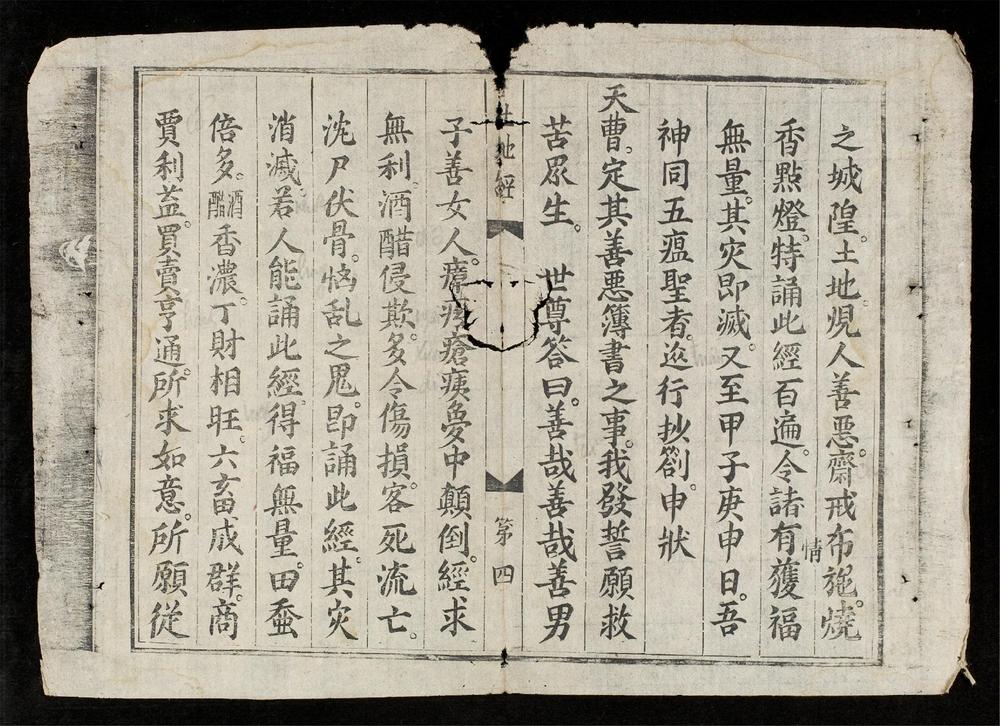 之城隍。土地。児人善悪。齋戒布施。燒
香點燈。特誦此經百遍。令諸有情獲福
無量。其灾即滅。又至甲子庚申日。吾
神同五瘟聖者。巡行抄劄。申狀
天曹。定其善悪簿書之事。我發誓願救
苦眾生。 世尊答曰。善哉善哉善男
地經
第四
子善女人。瘡痍夢中顛倒。經求
無利。酒醋侵欺。多令傷損。客死流亡。
沈尸伏骨。惱乱之鬼。即誦此經。其灾
消滅。若人能誦此經。得福無量。田蚕
倍多。酒醋香濃。丁財相旺。六畜成群。商
賈利益。買賣亨通。所求如意。所願從